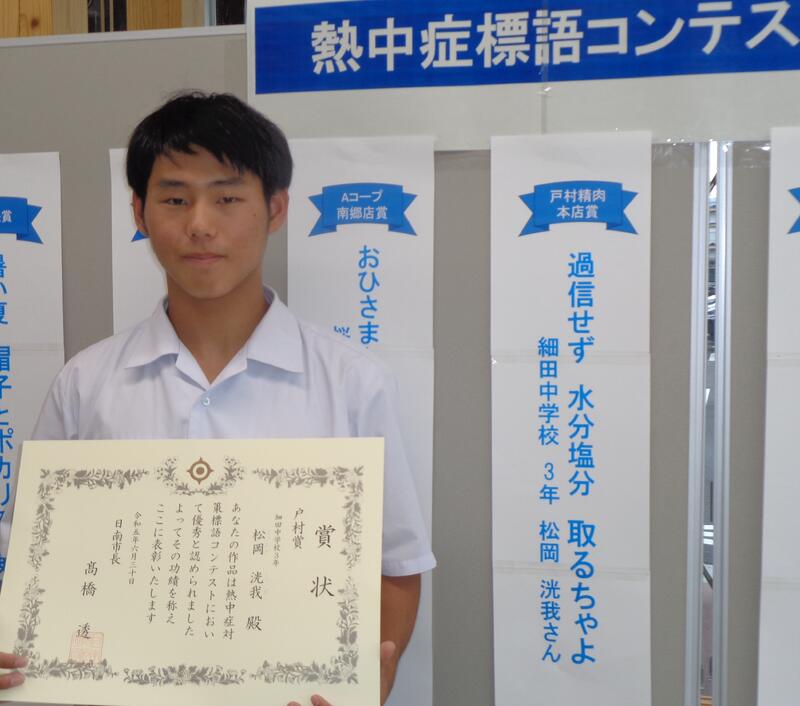 熱中症標語コンテス
戸村精肉
本店賞
過信せず 水分塩分 取るちゃよ
細田中学校 3年 松岡 洸我さん
Aコープ
南郷店賞
おひさま
賞
暑い夏 帽子とポカリ
賞状
戸村賞
細田中学校3年
松岡 洸我 殿
あなたの作品は熱中症対
策標語コンテストにおい
て優秀と認められました
よってその功績を称え
ここに表彰いたします
令和五年六月三十日
日南市長
髙橋 透